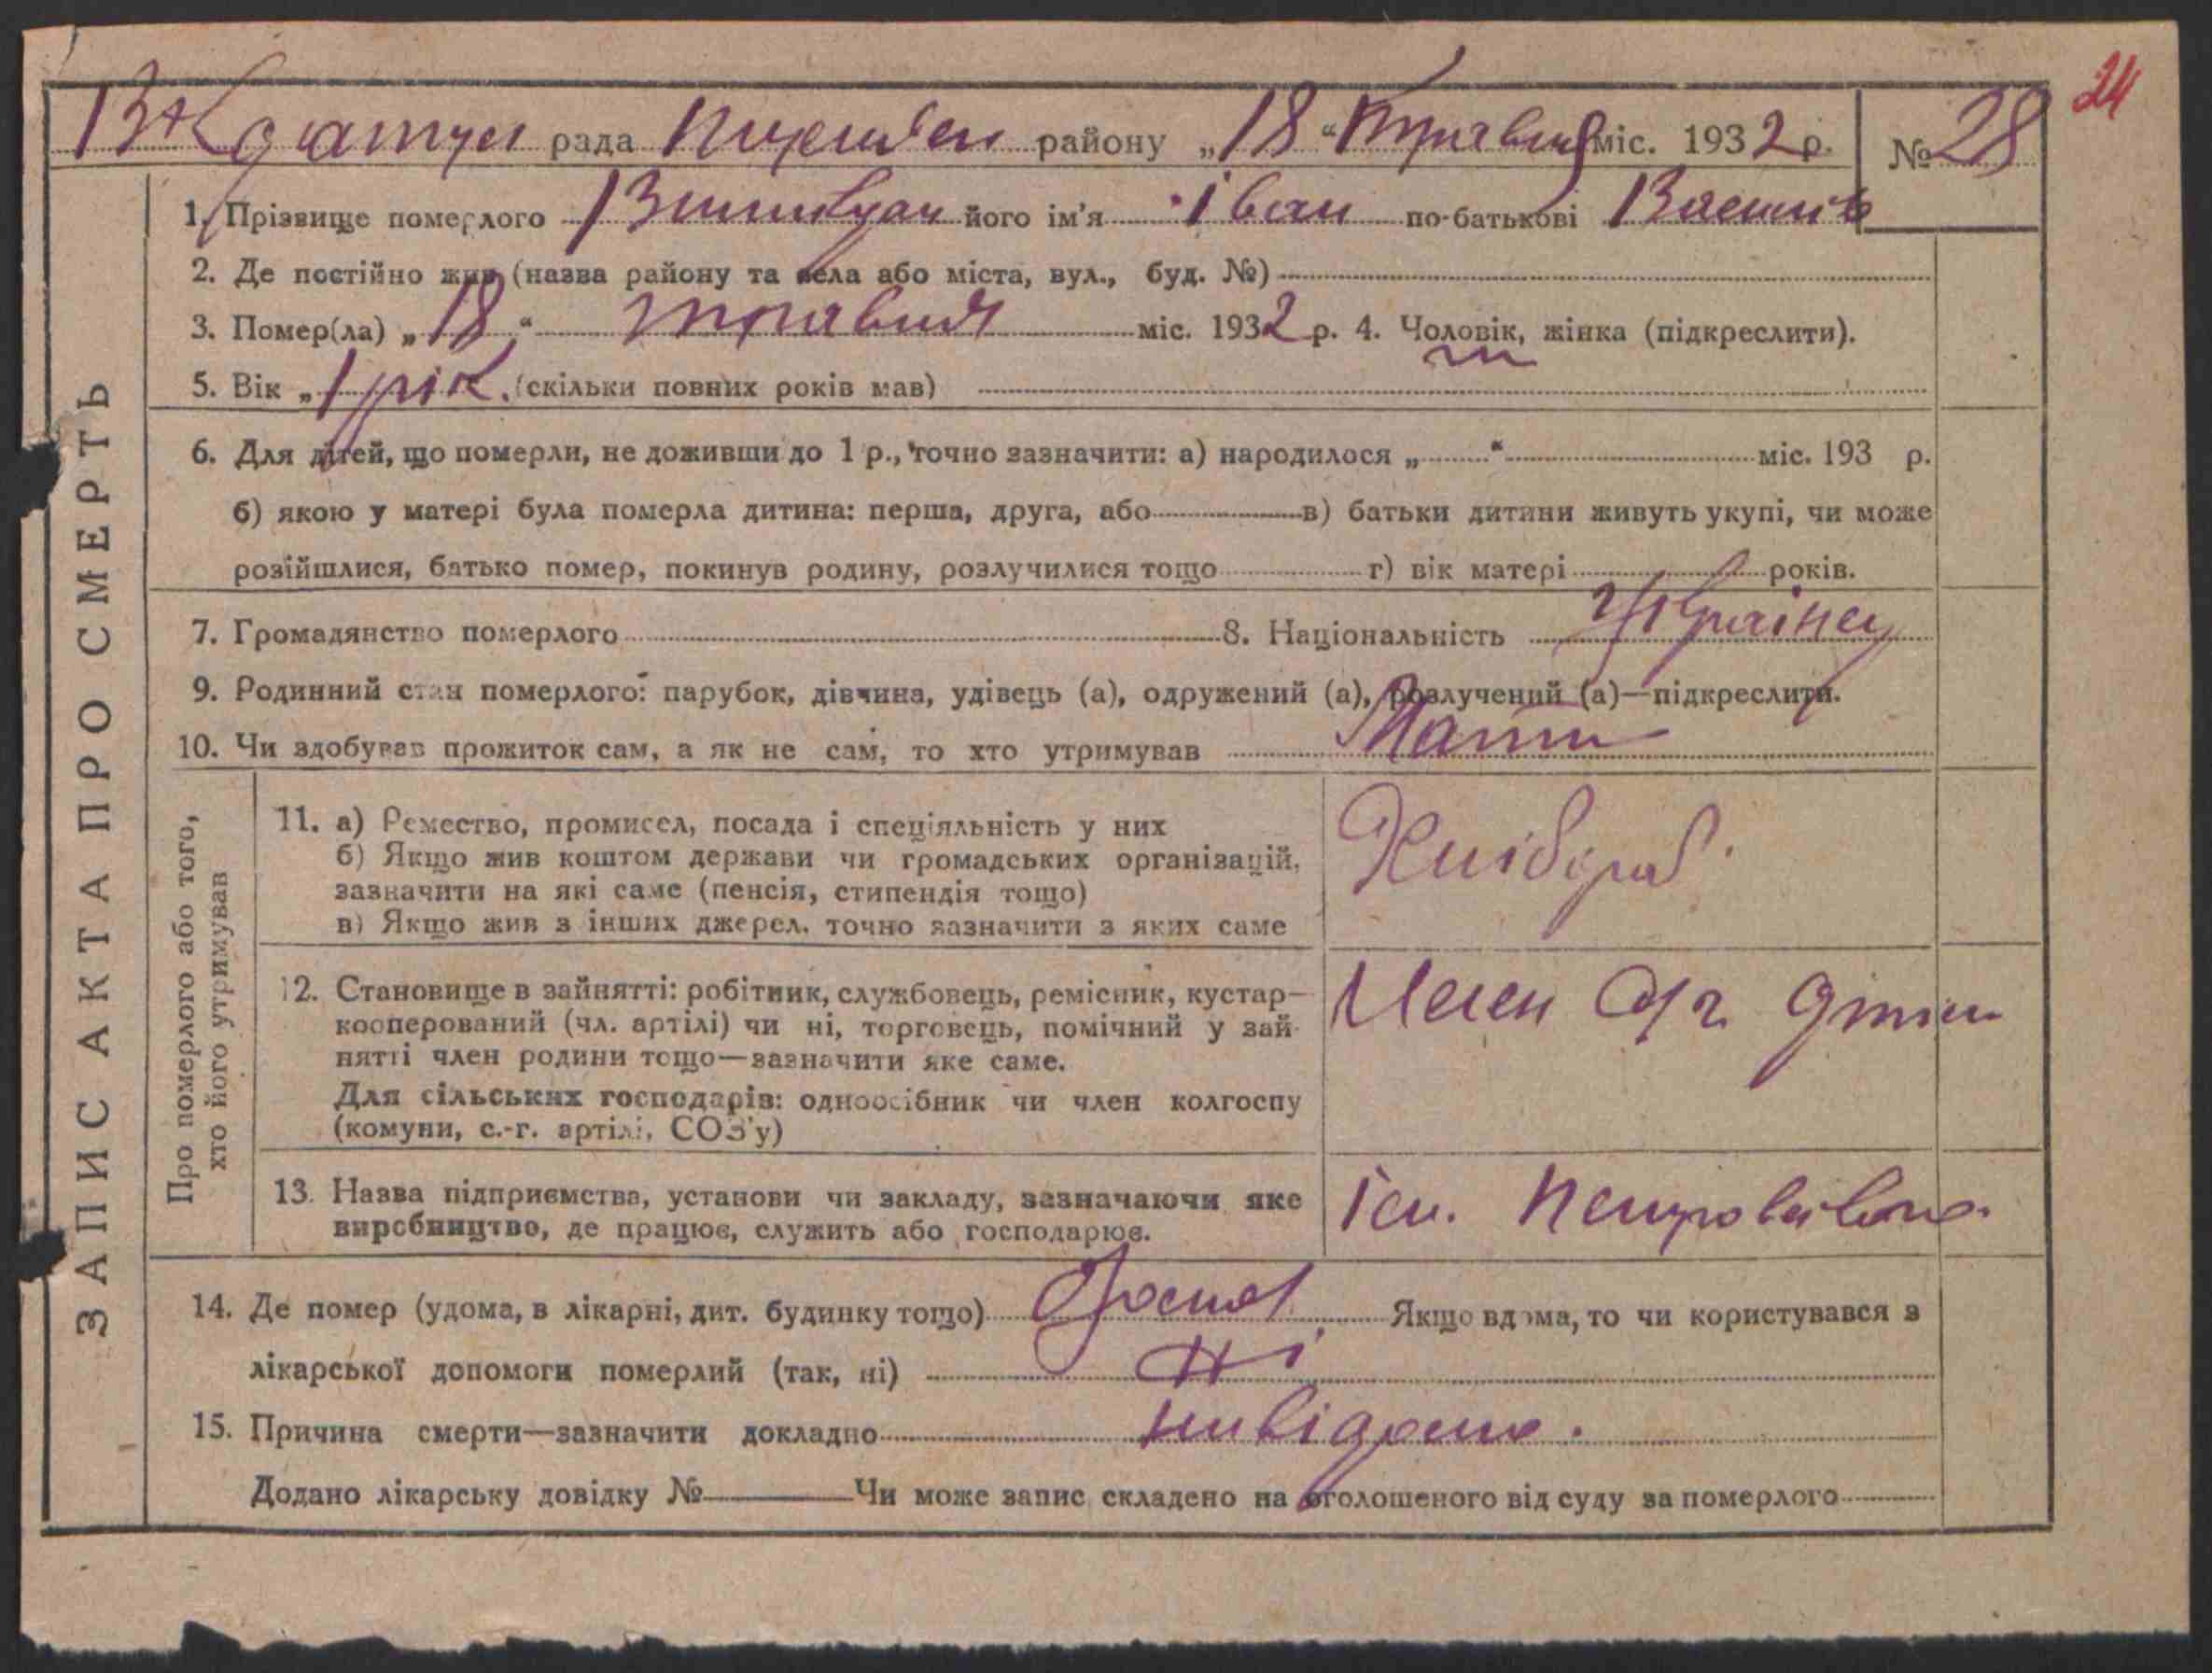 24
рада район у „18“ Травня міс. 1932 р. № 28
ЗАПИС АКТА ПРО СМЕРТЬ
1. Прізвище померлого його ім'я Іван по-батькові
2. Де постійно жив (назва району та села або міста, вул., буд. №)
3. Помер(ла) „18“ травня міс. 1932 р. 4. Чоловік, жінка (підкреслити).
5. Вік „1 рік. (скільки повних років мав)
6. Для дітей, що померли, не доживши до 1 р., точно зазначити: а) народилося „ “ міс. 193 р.
б) якою у матері була померла дитина: перша, друга, або в) батьки дитини живуть укупі, чи може
розійшлися, батько помер, покинув родину, розлучилися тощо г) вік матері років.
7. Громадянство померлого 8. Національність
9. Родинний стан померлого: парубок, дівчина, удівець (а), одружений (а), розлучений (а)—підкреслити.
10. Чи здобував прожиток сам, а як не сам, то хто утримував Мати
Про померлого або того,
хто його утримував
11. а) Ремество, промисел, посада і спеціяльність у них
б) Якщо жив коштом держави чи громадських організацій,
зазначити на які саме (пенсія, стипендія тощо)
в) Якщо жив з інших джерел, точно зазначити з яких саме
Хлібороб.
12. Становище в зайнятті: робітник, службовець, ремісник, кустар—
кооперований (чл. артілі) чи ні, торговець, помічний у зай-
нятті член родини тощо—зазначити яке саме.
Для сільських господарів: одноосібник чи член колгоспу
(комуни, с.-г. артілі, СОЗ'у)
Член
13. Назва підприємства, установи чи закладу, зазначаючи яке
виробництво, де працює, служить або господарює.
Ім. Петровського.
14. Де помер (удома, в лікарні, дит. будинку тощо) Якщо вдома, то чи користувався з
лікарської допомоги померлий (так, ні) ні
15. Причина смерти—зазначити докладно невідомо.
Додано лікарську довідку № Чи може запис складено на оголошеного від суду за померлого